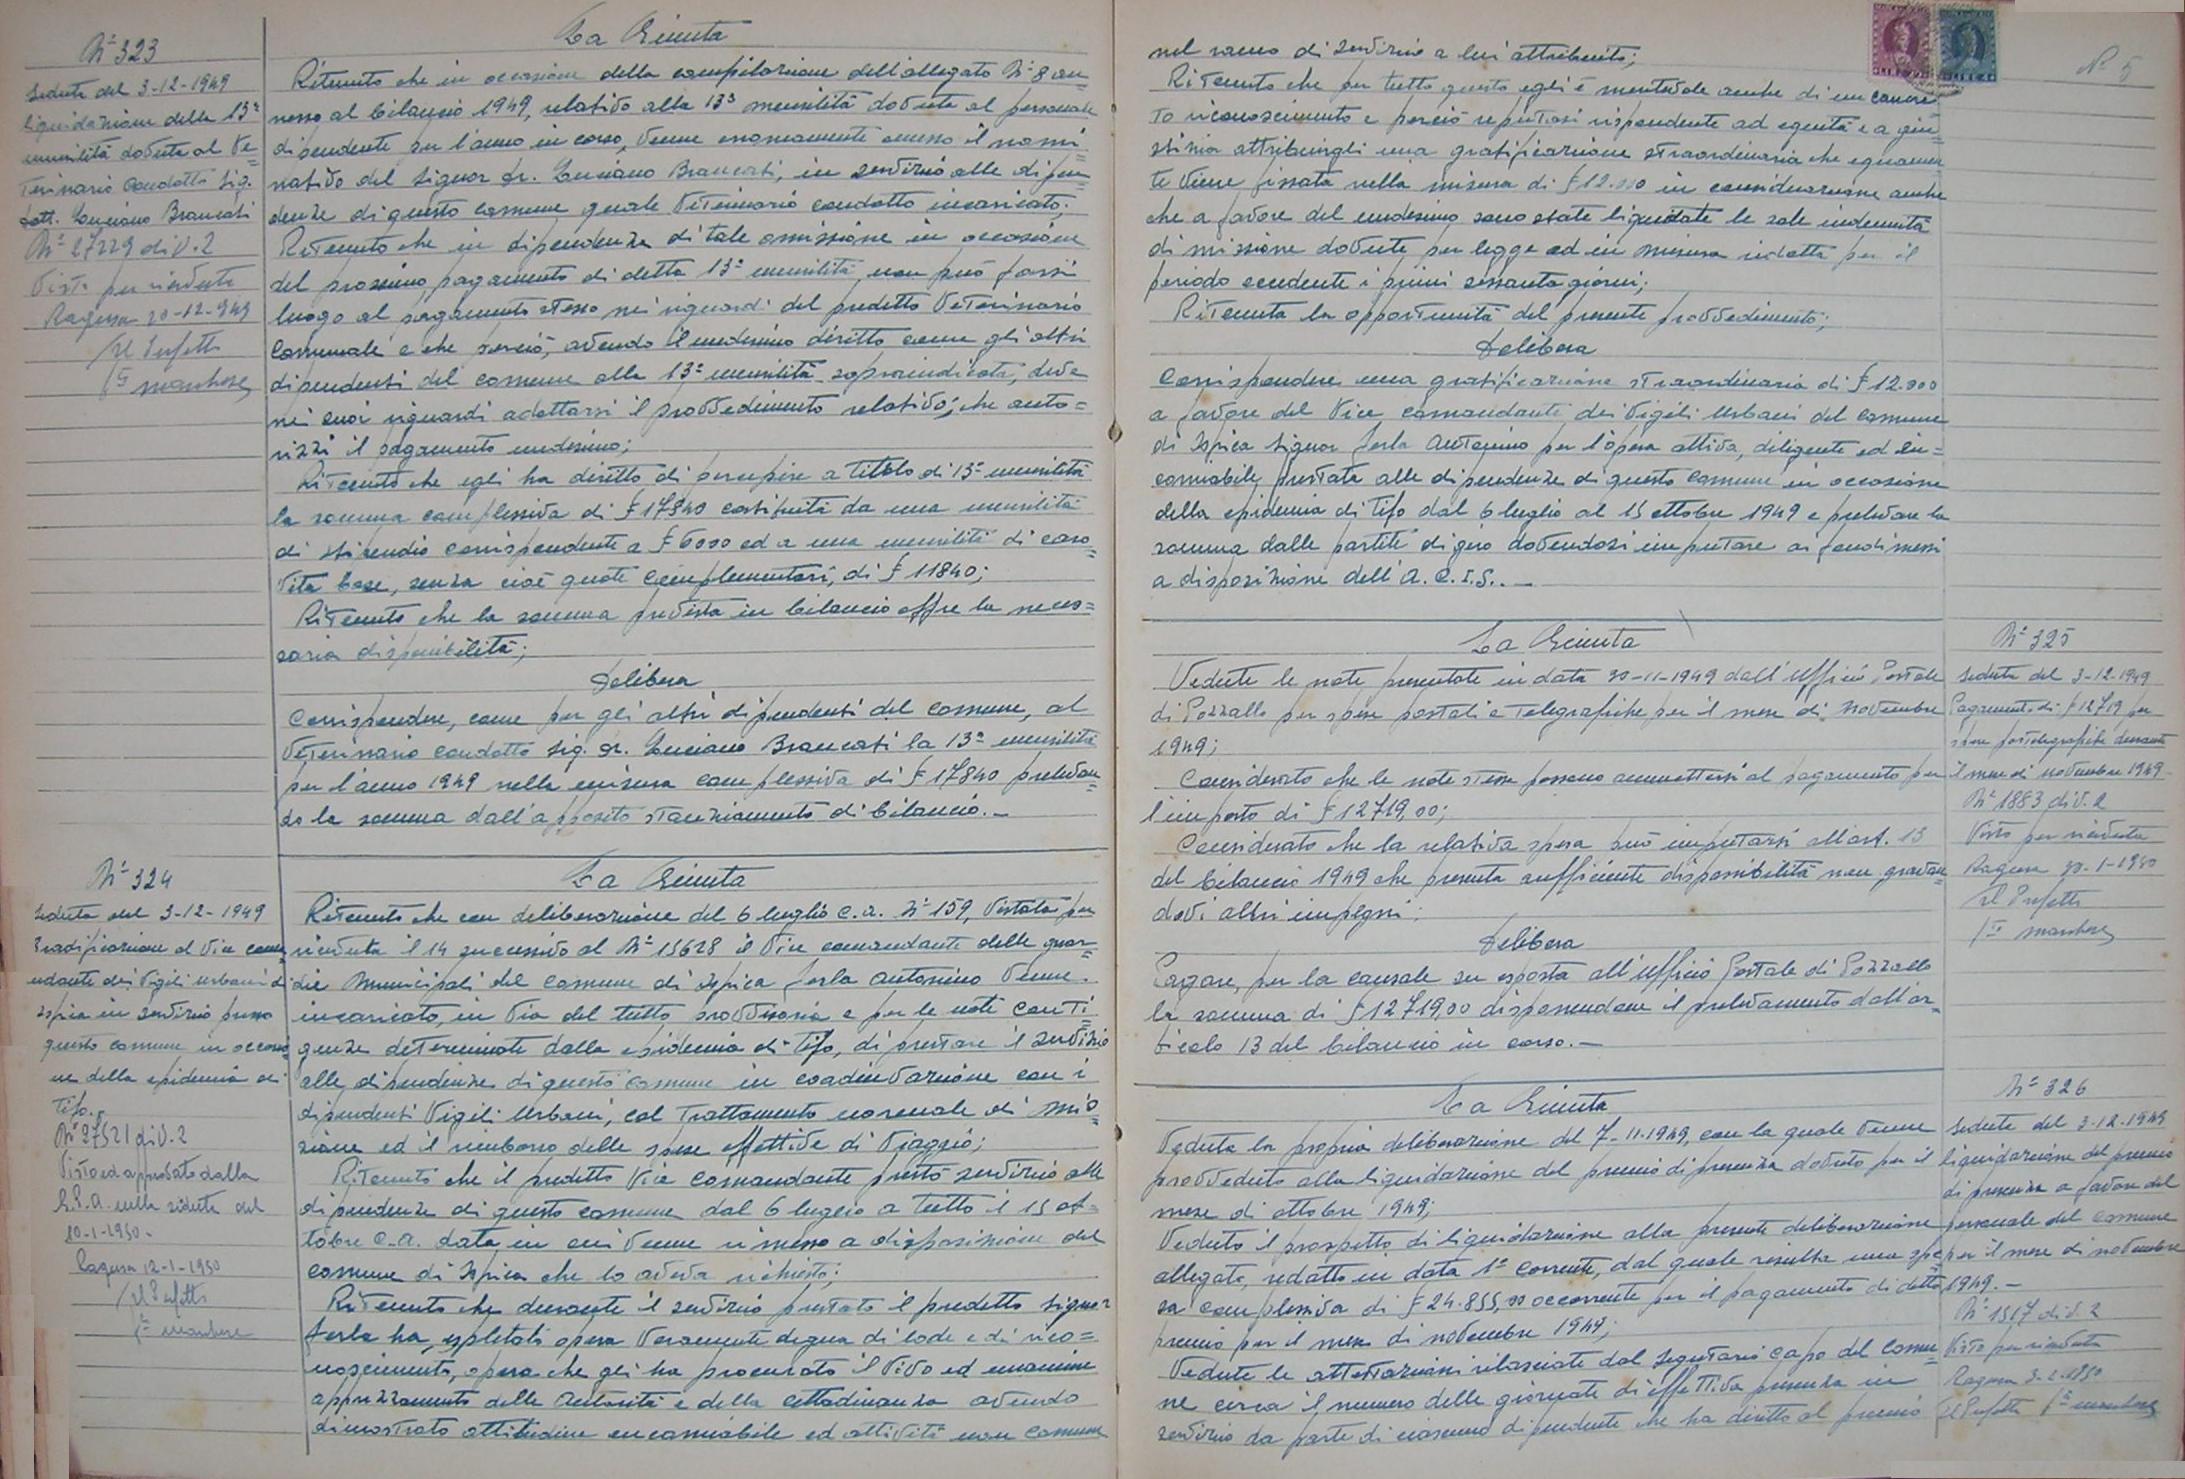 N° 323
Seduta del 3-12-1949
liquidazione della 13ª
mensilità dovuta al Ve=
terinario Condotto Sig.
Dott. Luciano Brancati
N° 27229 div. 2
Visto per ricevuta
Ragusa 20-12-949
Il Prefetto
La Giunta
Ritenuto che in occasione della compilazione dell'allegato N° 8 an
nesso al bilancio 1949, relativo alla 13ª mensilità dovuta al personale
dipendente per l'anno in corso, venne erroneamente omesso il nomi
nativo del Signor Dr. Luciano Brancati, in servizio alle dipen
denze di questo comune quale Veterinario condotto incaricato;
Ritenuto che in dipendenza di tale omissione in occasione
del prossimo pagamento di detta 13ª mensilità non può farsi
luogo al pagamento stesso nei riguardi del predetto Veterinario
Comunale e che perciò, avendo il medesimo diritto come gli altri
dipendenti del comune alla 13ª mensilità sopraindicata, deve
nei suoi riguardi adottarsi il provvedimento relativo, che auto=
rizzi il pagamento medesimo;
Ritenuto che egli ha diritto di percepire a titolo di 13ª mensilità
la somma complessiva di £ 17840 costituita da una mensilità
di stipendio corrispondente a £ 6000 ed a una mensilità di caro=
vita base, senza cioè quote complementari, di £ 11840;
Ritenuto che la somma prevista in bilancio offre la neces=
saria disponibilità;
Delibera
Corrispondere, come per gli altri dipendenti del comune, al
Veterinario condotto Sig. Dr. Luciano Brancati la 13ª mensilità
per l'anno 1949 nella misura complessiva di £ 17840 prelevan=
do la somma dall'apposito stanziamento di bilancio.-
N° 324
Seduta del 3-12-1949
Gratificazione al Vice coma
ndante dei Vigili urbani di
Ispica in servizio presso
questo comune in occasio
ne della epidemia di
Tifo.
N° 27521 div. 2
Visto ed approvato dalla
G.P.A. nella seduta del
10-1-1950.
Ragusa 12-1-1950
Il Prefetto
La Giunta
Ritenuto che con deliberazione del 6 luglio c.a. N° 159, vistata per
ricevuta il 14 successivo al N° 15628 il Vice comandante delle guar=
die Municipali del comune di Ispica Ferla Antonino venne
incaricato, in via del tutto provvisoria e per le note conti
genze determinate dalla epidemia di Tifo, di prestare il servizio
alle dipendenze di questo comune in coadiuvazione con i
dipendenti Vigili Urbani, col trattamento normale di mis=
sione ed il rimborso delle spese effettive di viaggio;
Ritenuto che il predetto Vice Comandante prestò servizio alle
dipendenze di questo comune dal 6 luglio a tutto il 15 ot=
tobre c.a. data in cui venne rimesso a disposizione del
comune di Ispica che lo aveva richiesto;
Ritenuto che durante il servizio prestato il predetto signor
Ferla ha espletato opera veramente degna di lode e di rico=
noscimento, opera che gli ha procurato il vivo ed unanime
apprezzamento delle Autorità e della cittadinanza avendo
dimostrato attitudine encomiabile ed attività non comune
N° 5
nel ramo di servizio a lui attribuito;
Ritenuto che per tutto questo egli è meritevole anche di un concre=
to riconoscimento e perciò reputasi rispondente ad equità e a giu=
stizia attribuirgli una gratificazione straordinaria che equamen
te viene fissata nella misura di £ 12.000 in considerazione anche
che a favore del medesimo sono state liquidate le sole indennità
di missione dovute per legge ed in misura ridotta per il
periodo eccedente i primi sessanta giorni;
Ritenuta la opportunità del presente provvedimento;
Delibera
Corrispondere una gratificazione straordinaria di £ 12.000
a favore del Vice comandante dei Vigili Urbani del comune
di Ispica Signor Ferla Antonino per l'opera attiva, diligente ed en=
comiabile prestata alle dipendenze di questo comune in occasione
della epidemia di Tifo dal 6 luglio al 15 ottobre 1949 e prelevare la
somma dalle partite di giro dovendosi imputare ai fondi messi
a disposizione dell'A.C.I.S..-
La Giunta
Vedute le note presentate in data 30-11-1949 dall'Ufficio Postale
di Pozzallo per spese postali e telegrafiche per il mese di novembre
1949;
Considerato che le note stesse possono ammettersi al pagamento per
l'importo di £ 12719,00;
Considerato che la relativa spesa può imputarsi all'art. 13
del bilancio 1949 che presenta sufficiente disponibilità non gravan=
dovi altri impegni;
Delibera
Pagare, per la causale su esposta all'Ufficio Postale di Pozzallo
la somma di £ 12719,00 disponendone il prelevamento dall'ar=
ticolo 13 del bilancio in corso.-
N° 325
Seduta del 3-12-1949
Pagamento di £ 12719 per
spese postelegrafiche durante
il mese di novembre 1949-
N° 1883 div. 2
Visto per ricevuta
Ragusa 30-1-1950
Il Prefetto
La Giunta
Veduta la propria deliberazione del 7-11-1949, con la quale venne
provveduto alla liquidazione del premio di presenza dovuto per il
mese di ottobre 1949;
Veduto il prospetto di liquidazione alla presente deliberazione
allegato, redatto in data 1° corrente, dal quale resulta una spe=
sa complessiva di £ 24.855,00 occorrente per il pagamento di detto
premio per il mese di novembre 1949;
Vedute le attestazioni rilasciate dal Segretario Capo del Comu=
ne circa il numero delle giornate di effettiva presenza in
servizio da parte di ciascuno dipendente che ha diritto al premio
N° 326
Seduta del 3-12-1949
liquidazione del premio
di presenza a favore del
personale del comune
per il mese di novembre
1949.-
N° 1517 div. 2
Visto per ricevuta
Ragusa 3-2-1950
Il Prefetto